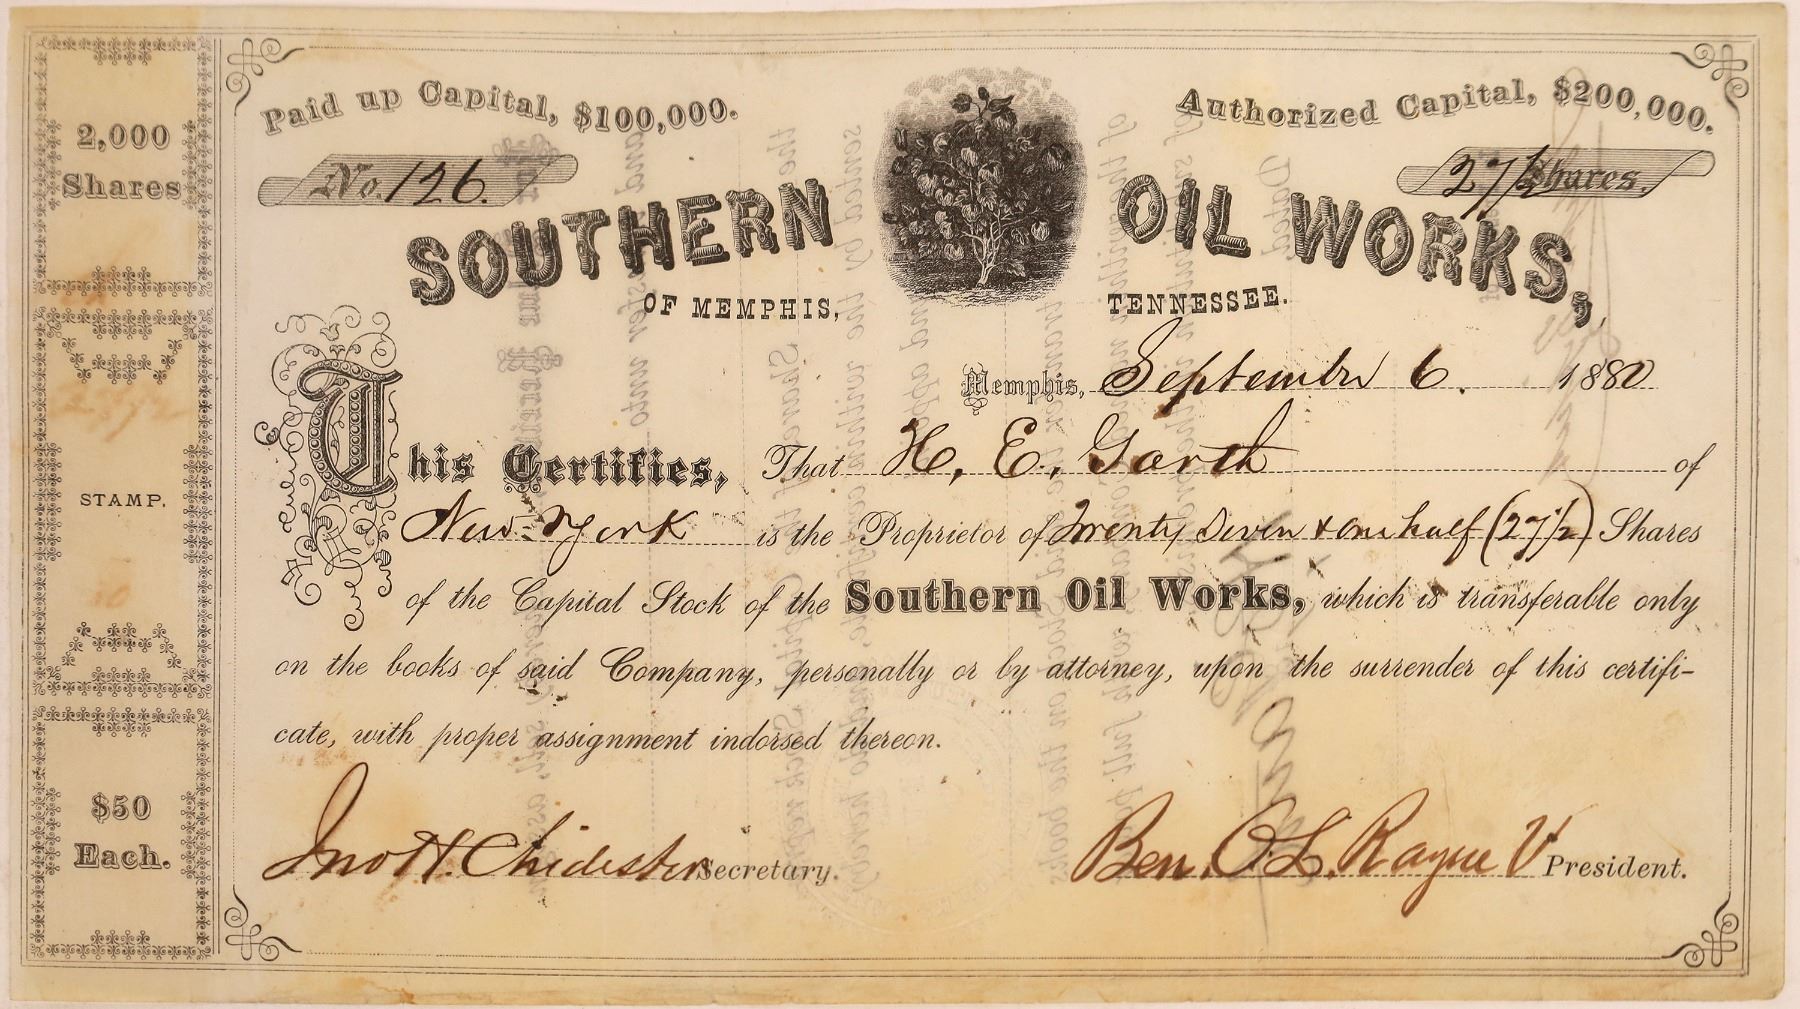 Paid up Capital, $100,000.
Authorized Capital, $200,000.
2,000
Shares
No. 126.
27 1/2 Shares.
SOUTHERN OIL WORKS,
OF MEMPHIS, TENNESSEE.
Memphis, September 6. 1880
This Certifies, That H. E. Garth of
New-York is the Proprietor of Twenty Seven & One half (27 1/2) Shares
of the Capital Stock of the Southern Oil Works, which is transferable only
on the books of said Company, personally or by attorney, upon the surrender of this certifi-
cate, with proper assignment indorsed thereon.
STAMP.
$50
Each.
Jno H. Chidester Secretary.
Ben. President.